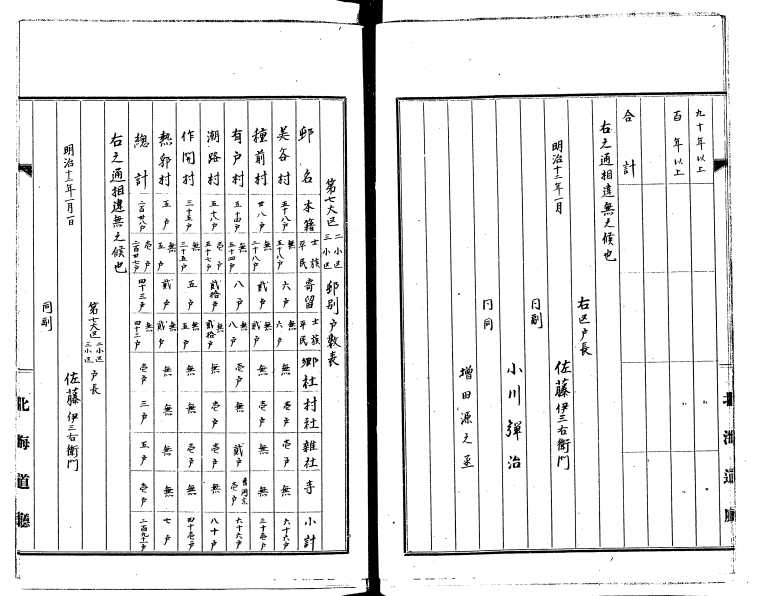 九十年以上 〃 〃
百年以上 〃 〃
合計
右之通相違無之候也
右区戸長
明治十二年一月 佐藤伊三右衛門
同副
小川彈治
同同
増田源之丞
北海道廳
第七大区 二小区 三小区 邨別戸数表
邨名 本籍 士族 平民 寄留 士族 平民 郷社 村社 雑社 寺 小計
美谷村 五十八戸 無 五十八戸 六戸 無 六戸 無 壱戸 壱戸 無 六十六戸
種前村 廿八戸 無 二十八戸 貳戸 無 貳戸 無 無 無 無 三十壱戸
有戸村 五十四戸 無 五十四戸 八戸 無 八戸 壱戸 無 貳戸 壱戸 六十六戸
潮路村 五十八戸 壱戸 五十七戸 貳拾戸 無 貳拾戸 無 壱戸 壱戸 無 八十戸
作開村 三十五戸 無 三十五戸 五戸 無 五戸 無 壱戸 壱戸 無 四十壱戸
熱郛村 五戸 無 五戸 貳戸 無 貳戸 無 無 無 無 七戸
總計 壱戸 四十三戸 無 四十三戸 壱戸 三戸 五戸 壱戸 二百九十一戸
右之通相違無之候也
第七大区 二小区 三小区 戸長
明治十二年一月一日 佐藤伊三右衛門
同副
北海道廳